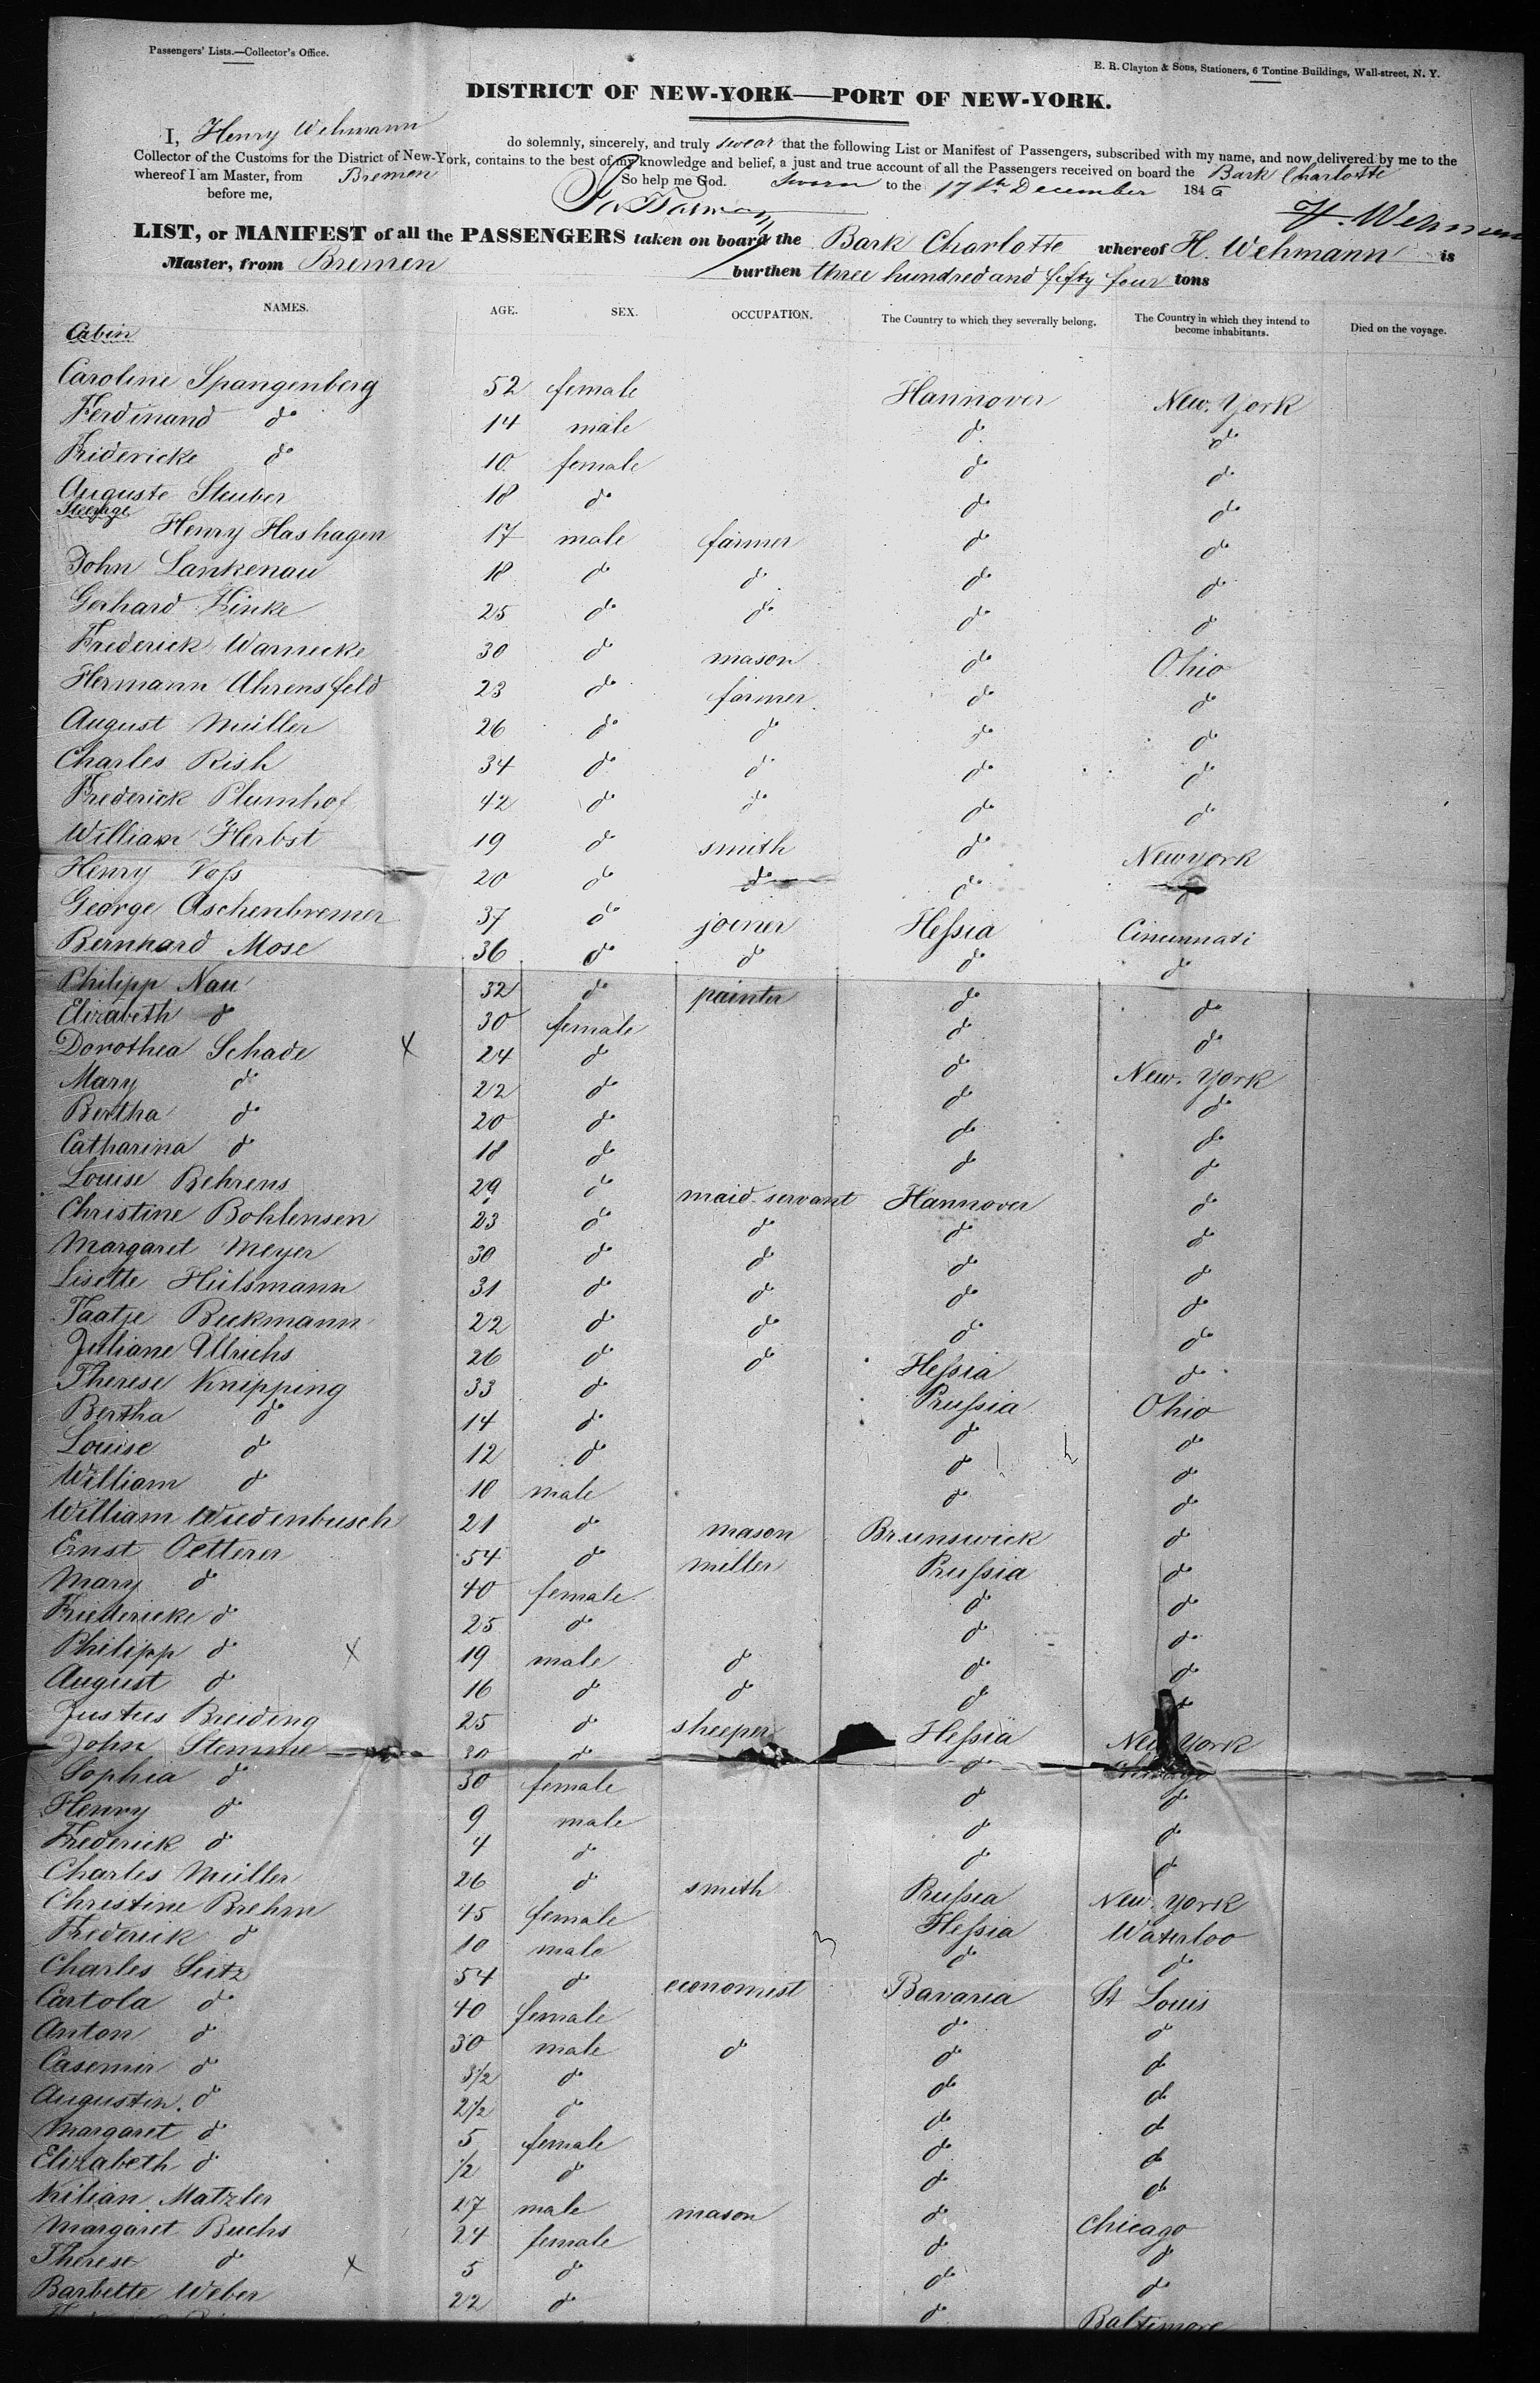 Passengers' Lists.—Collector's Office.
E. B. Clayton & Sons, Stationers, 6 Tontine Buildings, Wall-street, N. Y.
DISTRICT OF NEW-YORK—PORT OF NEW-YORK.
I, Henry Wehmann do solemnly, sincerely, and truly swear that the following List or Manifest of Passengers, subscribed with my name, and now delivered by me to the
Collector of the Customs for the District of New-York, contains to the best of my knowledge and belief, a just and true account of all the Passengers received on board the Bark Charlotte
whereof I am Master, from Bremen So help me God.
Sworn to the 17th December 1846
before me,
H. Wehmann
LIST, or MANIFEST of all the PASSENGERS taken on board the Bark Charlotte whereof H. Wehmann is
Master, from Bremen burthen three hundred and fifty four tons
NAMES. AGE. SEX. OCCUPATION. The Country to which they severally belong. The Country in which they intend to become inhabitants. Died on the voyage.
Cabin
Caroline Spangenberg 52 female Hannover New. York
Ferdinand do 14 male do do
Fridericke do 10 female do do
Auguste Steuber 18 do do do
Steerage
Henry Hashagen 17 male farmer do do
John Lankenau 18 do do do do
Gerhard Finke 25 do do do do
Frederick Warnecke 30 do mason do Ohio
Hermann Ahrensfeld 23 do farmer do do
August Müller 26 do do do do
Charles Rish 34 do do do do
Frederick Plumhof 42 do do do do
William Herbst 19 do smith do Newyork
Henry Voss 20 do do do do
George Aschenbremer 37 do joener Hessia Cincinnati
Bernhard Mose 36 do do do do
Philipp Nau 32 do painter do do
Elizabeth do 30 female do do
Dorothea Schade x 24 do do New. York
Mary do 22 do do do
Bertha do 20 do do do
Catharina do 18 do do do
Louise Behrens 29 do maid servant Hannover do
Christine Bohlensen 23 do do do do
Margaret Meyer 30 do do do do
Lisette Hülsmann 31 do do do do
Taatje Beckmann 22 do do do do
Juliane Ullrichs 26 do do Hessia do
Therese Knipping 33 do Prussia Ohio
Bertha do 14 do do do
Louise do 12 do do do
William do 10 male do do
William Wiedenbusch 21 do mason Brunswick do
Ernst Oetterer 54 do miller Prussia do
Mary do 40 female do do
Friedericke do 25 do do do
Philipp do x 19 male do do do
August do 16 do do do do
Justus Breiding 25 do sheeper Hessia New York
John Stemme 30 do do Chicago
Sophia do 30 female do do
Henry do 9 male do do
Frederick do 4 do do do
Charles Müller 26 do smith Prussia New. York
Christine Brehm 45 female Hessia Waterloo
Frederick do 10 male do do
Charles Seitz 54 do economist Bavaria St Louis
Cartola do 40 female do do
Anton do 30 male do do do
Casemir do 3½ do do do
Augustin. do 2½ do do do
Margaret do 5 female do do
Elizabeth do ½ do do do
Kilian Matzler 27 male mason do Chicago
Margaret Buchs 24 female do do
Therese do x 5 do do do
Barbette Weber 22 do do Baltimore